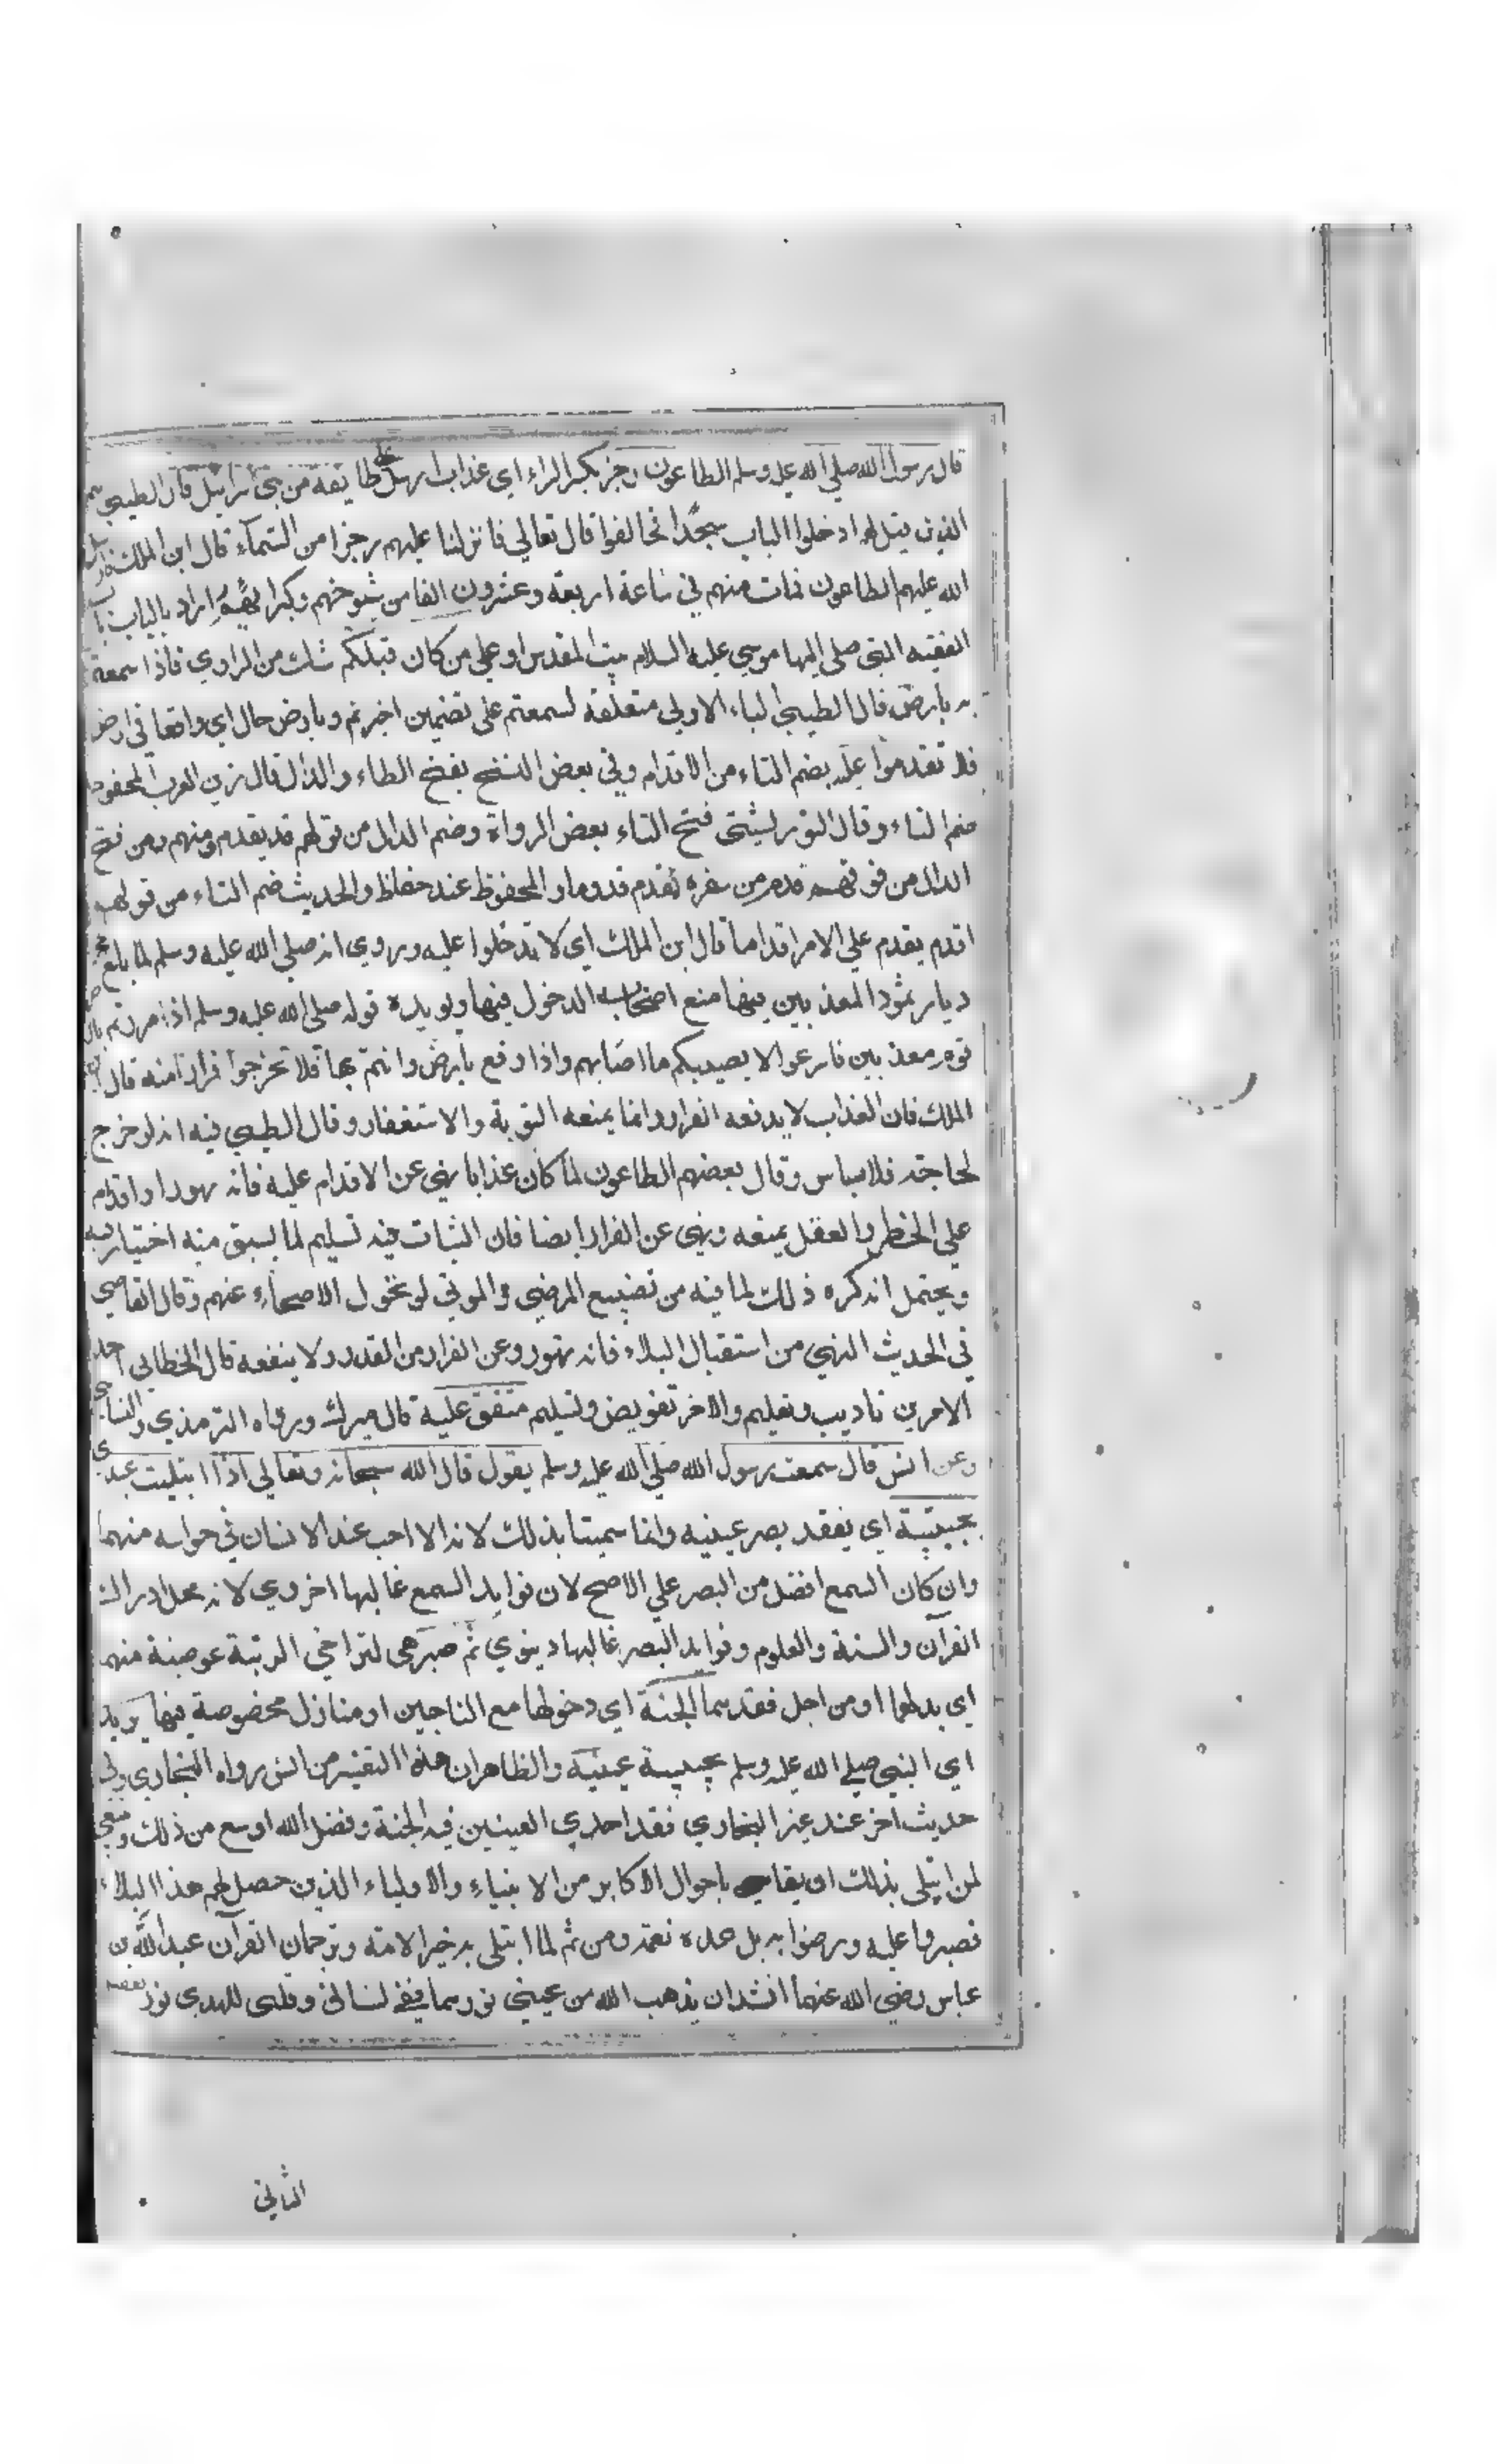 قال رسول الله صلي الله عليه وسلم الطاعون رجز بكسر الراء اي عذاب ارسل علي طايفة من بني اسرائيل قال الطيبي هم
الذين قيل لهم ادخلوا الباب سجّدا فخالفوا قال تعالي فانزلنا عليهم رجزا من السّماء قال ابن الملك فارسل
الله عليهم الطاعون فمات منهم في ساعة اربعة وعشرون الفا من شيوخهم وكبرائهم اراد بالباب باب
القبة التي صلي اليها موسي عليه السلام ببيت المقدس او علي من كان قبلكم شك من الراوي فاذا سمعتم
به بارض قال الطيبي الباء الاولي متعلقة لسمعتم علي تضمين اخبرتم وبارض حال اي واقعا في ارض
فلا تقدموا عليه بضم التاء من الاقدام وفي بعض النسخ بفتح الطاء والدال قال زين العرب المحفوظ
ضم التاء وقال التوربشتي فتح التاء بعض الرواة وضم الدال من قولهم قديقدم ومنهم من فتح
الدال من قولهم قدم من سفره يقدم قدوما والمحفوظ عند حفاظ والحديث ضم التاء من قولهم
اقدم يقدم علي الامر اقداما قال ابن الملك اي لا تدخلوا عليه وروي انه صلي الله عليه وسلم لما بلغ
ديار ثمود المعذبين بينها منع اصحابه الدخول فيها ويويده قوله صلي الله عليه وسلم اذا مررتم بارض
قوم معذبين فاسرعوا لا يصيبكم ما اصابهم واذا وقع بارض وانتم بها فلا تخرجوا فرارا منه قال ابن
الملك فان العذاب لا يدفعه الفرار وانما يمنعه التوبة والاستغفار وقال الطيبي فيه انه لو خرج
لحاجته فلا باس وقال بعضهم الطاعون لما كان عذابا نهي عن الاقدام عليه فانه تهور واقدام
علي الخطر والعقل يمنعه ونهي عن الفرار ايضا فان الثبات فيه تسليم لما لم يسبق منه اختيار فيه
ويحتمل انه كره ذلك لما فيه من تضييع المرضي والموتي لو تحول الاصحاء عنهم وقال القاضي
في الحديث النهي من استقبال البلاء فانه تهور وعن الفرار من القدر ولا ينفعه قال الخطابي احد
الامرين تاديب وتعليم والاخر تفويض وتسليم متفق عليه قال ميرك ورواه الترمذي والنسائي
وعن انس قال سمعت رسول الله صلي الله عليه وسلم يقول قال الله سبحانه وتعالي اذا ابتليت عبدي
بحبيبتيه اي بفقد بصر عينيه وانما سميتا بذلك لانه الا احب عند الانسان في حواسه منهما
وان كان السمع افضل من البصر علي الاصح لان فوايد السمع غالبها اخروي لانه محل ادراك
القرآن والسنة والعلوم وفوايد البصر غالبها دينوي ثم صبر هي لتراخي الرتبة عوضته منهما
اي بدلهما او من اجل فقدهما الجنة اي دخولها مع الناجين او منازل مخصوصة فيها يريد
اي النبي صلي الله عليه وسلم بحبيبتيه عينيه والظاهر ان هذا التفسير من انس رواه البخاري وفي
حديث اخر عند غير البخاري فقد احدي العينين فيه الجنة وفضل الله اوسع من ذلك وينبغي
لمن ابتلي بذلك ان يتاسي باحوال الاكابر من الانبياء والاولياء الذين حصل لهم هذا البلاء
فصبروا عليه ورضوا به بل عدوه نعمة ومن ثم لما ابتلي به خير الامة وترجمان القرآن عبد الله بن
عباس رضي الله عنهما انشد ان يذهب الله من عيني نورهما ففي لساني وقلبي للهدي نور
الثاني